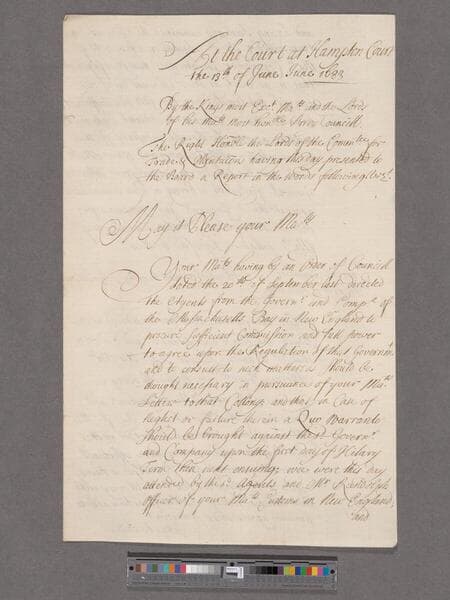 At the Court at Hampton Court
the 13th of June June 1683
By the Kings most Exct. Maty and the Lords
of his Mats most honble Privy Councill
The Right Honble the Lords of the Comittee for
Trade & Plantation having this day presented to
the Board a Report in the words following (vizt.
May it Please your Maty
Your Maty having by an Order of Councill
dated the 20th of September last directed
the Agents from the Governr. and Compa. of
the Massachusetts Bay in New England to
procure sufficient Commission and full power
to agree upon the Regulation of that Governmt.
and to consent to such matters as should be
thought necessary in pursuance of your Mats
Letter to that Collony and that in Case of
Neglect or failure therein a Quo Warranto
should be brought against the sd. Governr.
and Company upon the first day of Hilary
Term then next ensuing, wee were this day
attended by the sd. Agents and Mr Randolph
officer of your Mats Customs in New England,
and